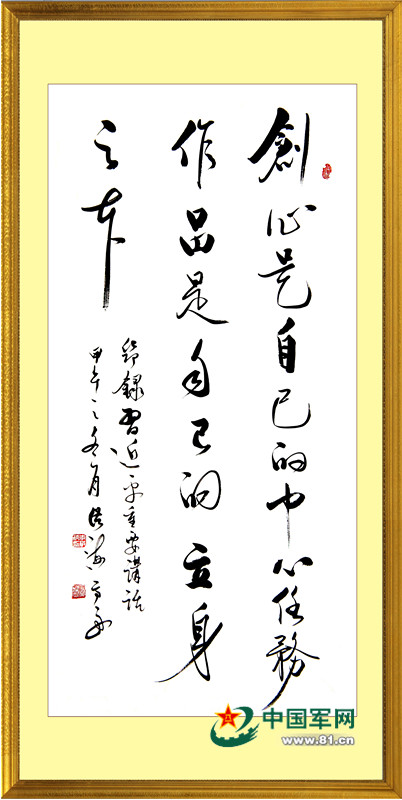 創作是自己的中心任務
作品是自己的立身
之本
節錄習近平重要講話
甲午之冬月
中国军网
www.81.cn